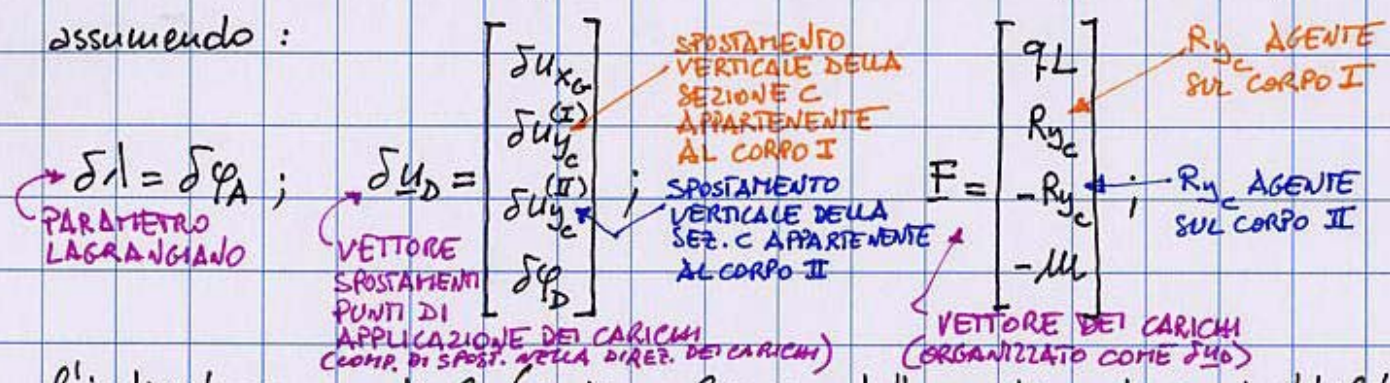 assumendo :
δλ = δφ_A ;
PARAMETRO
LAGRANGIANO
δu_D = [ δu_xG
δu_yc^(I)
δu_yc^(II)
δφ_D ] ;
VETTORE
SPOSTAMENTI
PUNTI DI
APPLICAZIONE DEI CARICHI
(COMP. DI SPOST. NELLA DIREZ. DEI CARICHI)
SPOSTAMENTO
VERTICALE DELLA
SEZIONE C
APPARTENENTE
AL CORPO I
SPOSTAMENTO
VERTICALE DELLA
SEZ. C APPARTENENTE
AL CORPO II
F = [ qL
R_yc
-R_yc
-M ] ;
R_yc AGENTE
SUL CORPO I
R_yc AGENTE
SUL CORPO II
VETTORE DEI CARICHI
(ORGANIZZATO COME δu_D)